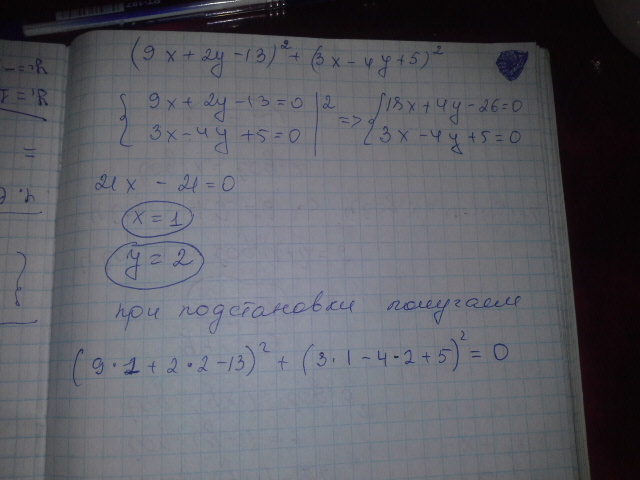 (9x+2y-13)² + (3x-4y+5)²
{ 9x+2y-13=0 | 2 => { 18x+4y-26=0
3x-4y+5=0 | 3x-4y+5=0
21x - 21=0
x=1
y=2
при подстановки получаем
(9·1+2·2-13)² + (3·1-4·2+5)² = 0